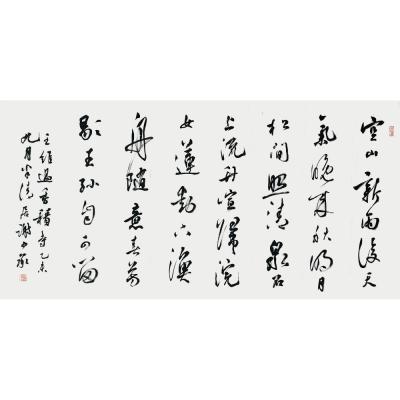 空山新雨後天
氣晚来秋明月
松間照清泉石
上流竹喧歸浣
女蓮動下漁
舟隨意春芳
歇王孫自可留
王維過香積寺乙未
九月清居謝